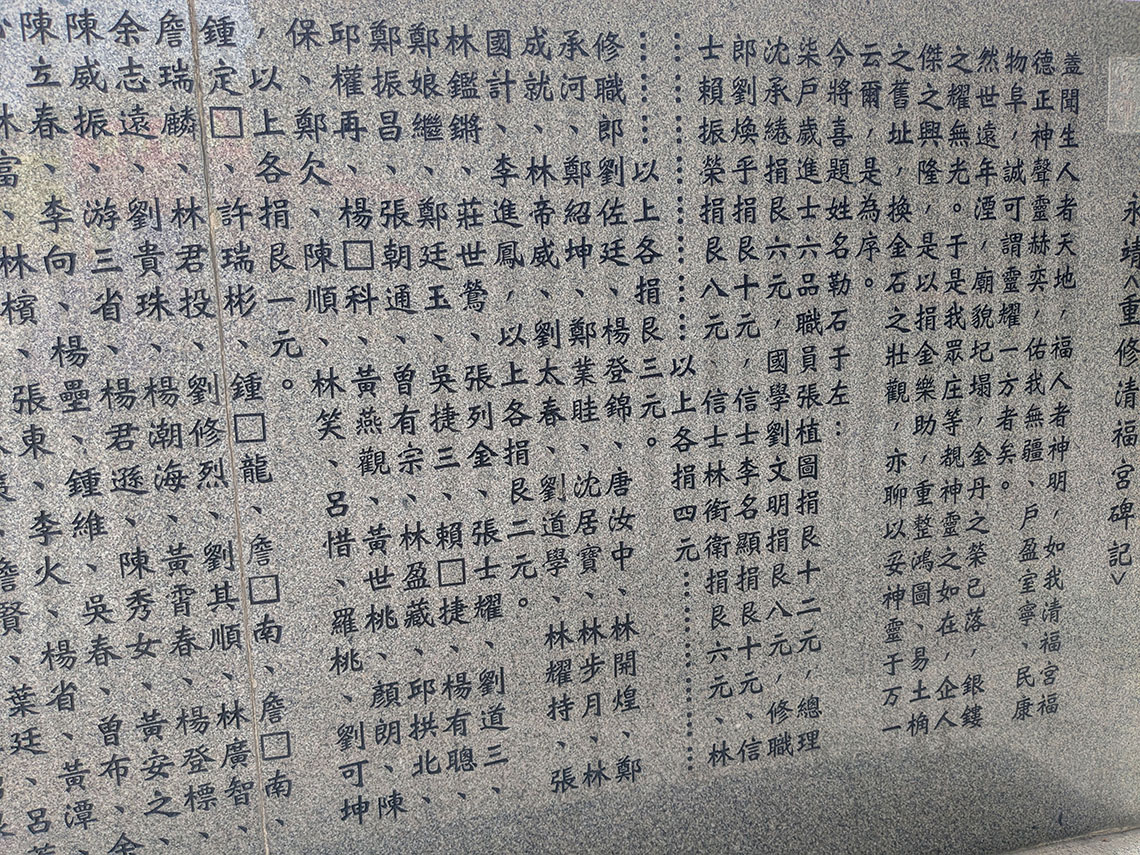 永靖<重修清福宮碑記>
蓋聞生人者天地,福人者神明,如我清福宮福
德正神聲靈赫奕,佑我無疆、戶盈室寧、民康
物阜,誠可謂靈耀一方者矣。
然世遠年湮,廟貌圮塌,金丹之榮已落,銀鏤
之耀無光。于是我眾庄等覩神靈之如在,企人
傑之興隆,是以捐金樂助,重整鴻圖、易土桷
之舊址,換金石之壯觀,亦聊以妥神靈于万一
云爾,是為序。
今將喜題姓名勒石于左:
柒戶歲進士六品職員張植圖捐艮十二元,總理
沈承綣捐艮六元,國學劉文明捐艮八元,修職
郎劉煥乎捐艮十元,信士李名顯捐艮十元、信
士賴振榮捐艮八元、信士林衛衛捐艮六元、林
……以上各捐四元……
……以上各捐艮三元。
修職郎劉佐廷、楊登錦、唐汝中、林開煌、鄭
承河、鄭紹坤、鄭業眭、沈居寶、林步月、林
成就、林帝威、劉太春、劉道學、林耀持、張
國計、李進鳳,以上各捐艮二元。
林鑑鏘、莊世鶯、張列金、張士耀、劉道三、
鄭娘繼、鄭廷玉、吳捷三、賴□捷、楊有聰、
鄭振昌、張朝通、曾有宗、林盈藏、邱拱北、
邱權再、楊□科、黃燕觀、黃世桃、顏朗、陳
保、鄭欠、陳順、林笑、呂惜、羅桃、劉可坤
,以上各捐艮一元。
鍾定□、許瑞彬、鍾□龍、詹□南、詹□南、
詹瑞麟、林君投、劉修烈、劉其順、林廣智、
余志遠、劉貴珠、楊潮海、黃霄春、楊登標、
陳威振、游三省、楊君遜、陳秀女、黃安之、
陳立春、李向、楊壘、鍾維、吳春、曾布、
林富、林檳、張東、李火、楊省、黃潭、
詹賢、葉廷、呂